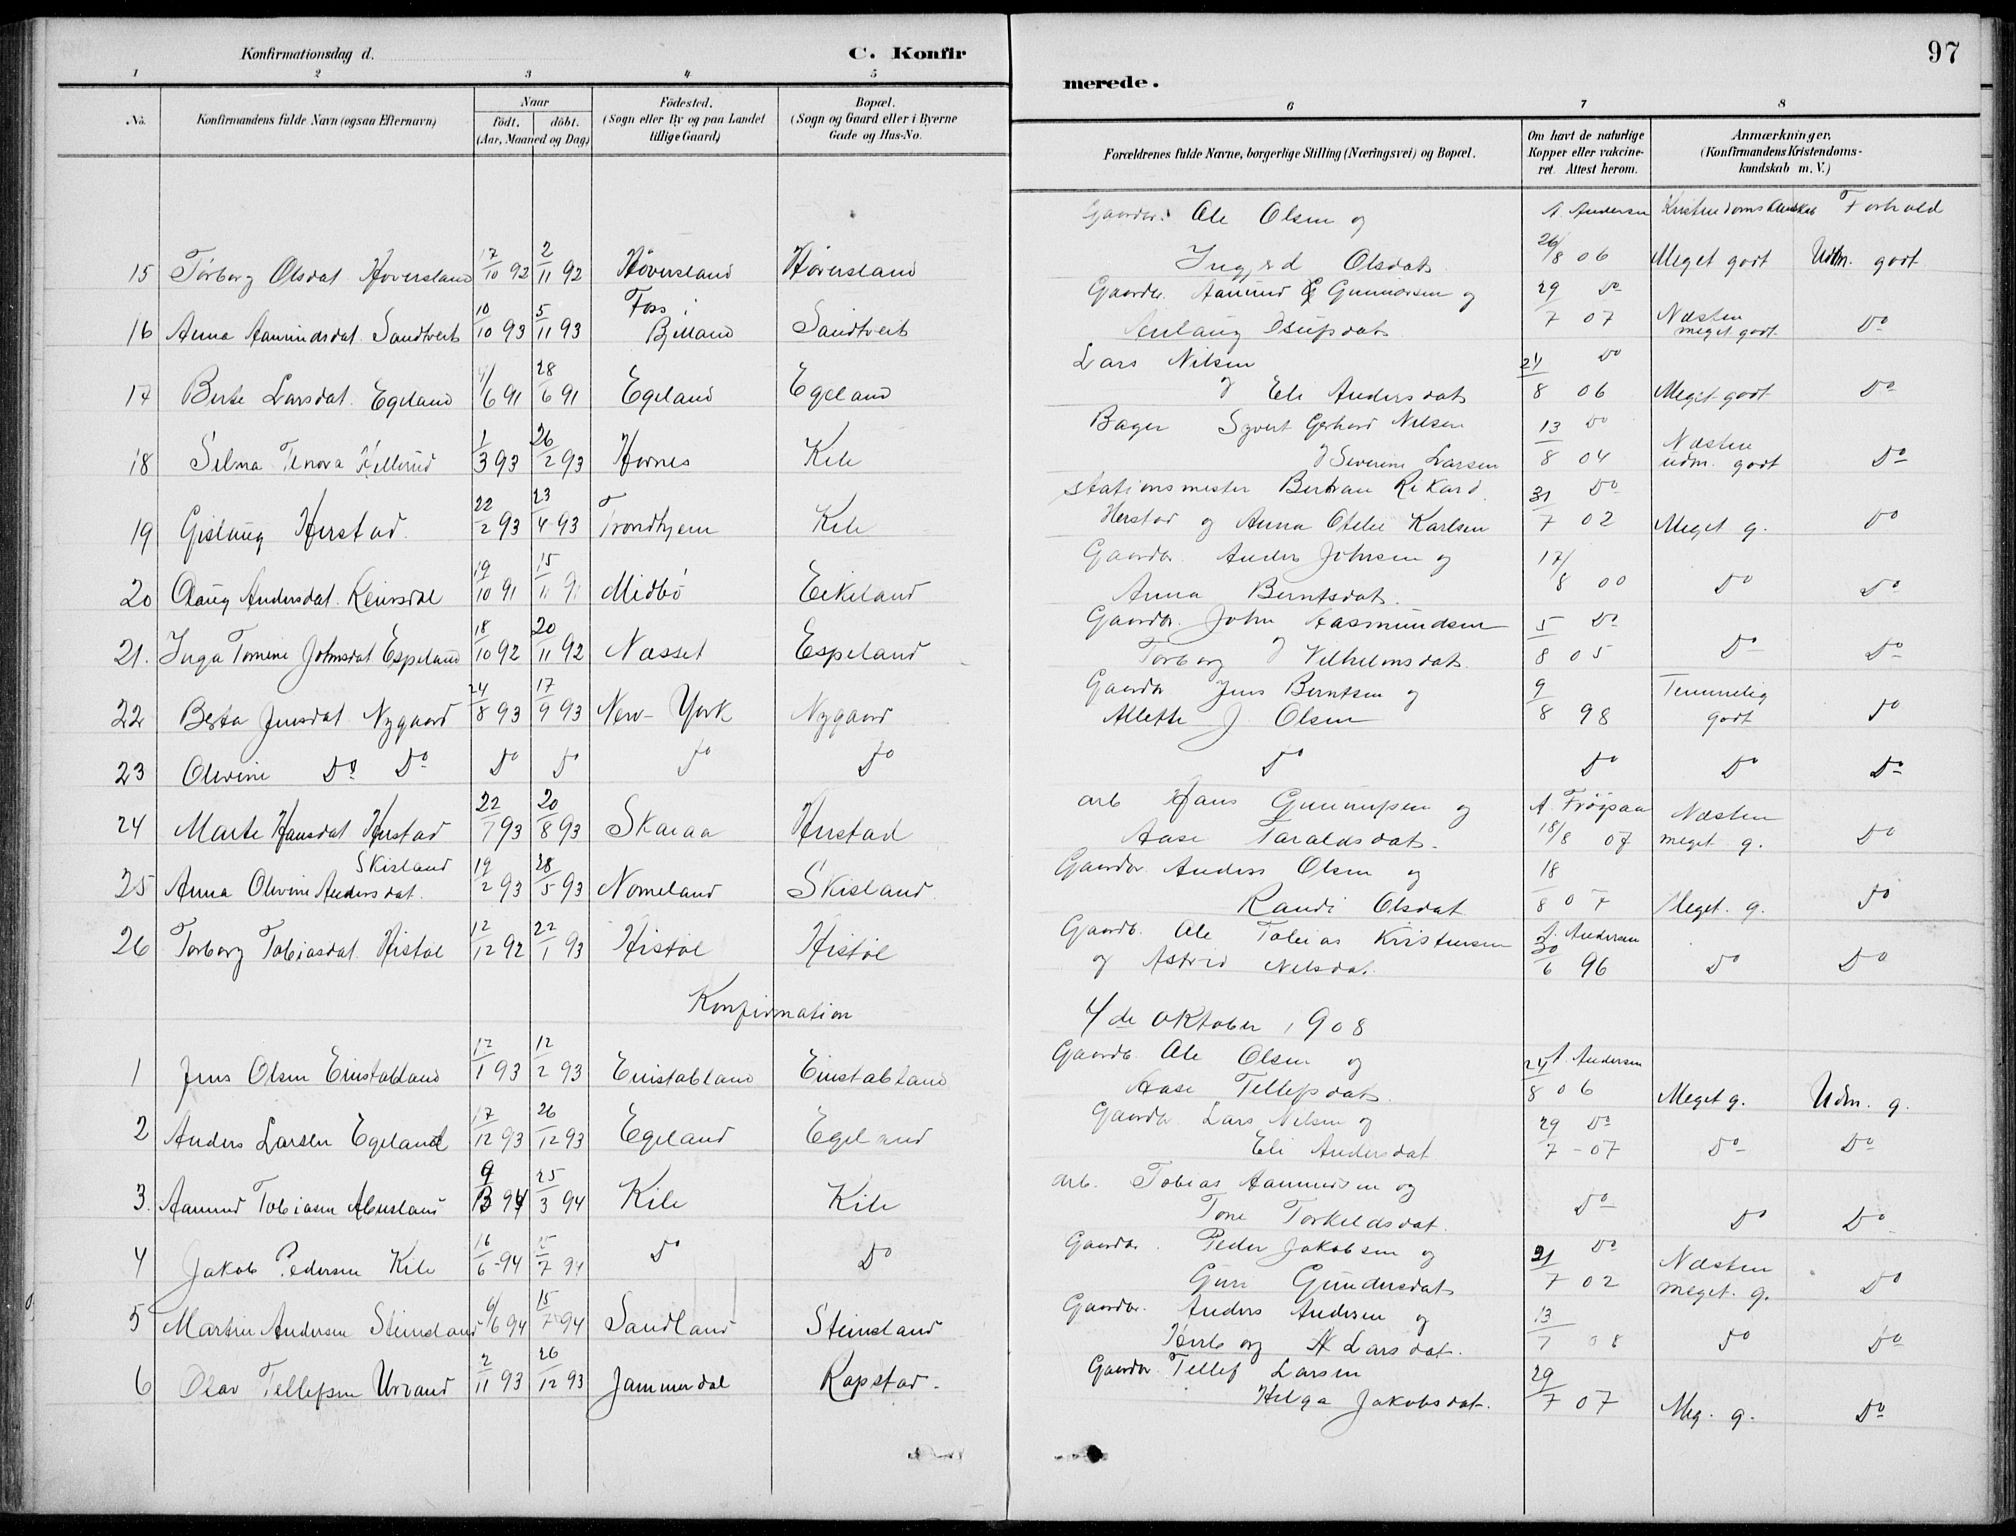 Konfirmationsdag d.
C. Konfirmerede.
97
1 2 3 4 5 6 7 8
No.
Konfirmandens fulde Navn (ogsaa Efternavn)
Naar
födt. döbt.
(Aar, Maaned og Dag)
Födested.
(Sogn eller By og paa Landet
tillige Gaard)
Bopæl.
(Sogn og Gaard eller i Byerne
Gade og Hus-No.
Forældrenes fulde Navne, borgerlige Stilling (Næringsvei) og Bopæl.
Om havt de naturlige
Kopper eller vakcine-
ret. Attest herom.
Anmærkninger.
(Konfirmandens Kristendoms-
kundskab m. V.)
Gaardbr. Ole Olsen og A. Andersen Kristendomskundskab Forhold
15 Torborg Olsdat. Hoversland 17/10 92 2/11 92 Höversland Höversland Ingjerd Olsdat. 26/8 06 Meget godt Udm. godt
Gaardbr. Aamund G Gunnarsen og 29 Do
16 Anna Aamundsdat. Sandtveit 10/10 93 5/11 93 Foss i Bjelland Sandtveit Anlaug Isupsdat. 7 07 Næsten meget godt Do
Lars Nilsen 24 Do
17 Berte Larsdat. Egeland 4/6 91 28/6 91 Egeland Egeland og Eli Andersdat. 8 06 Meget godt Do
Bager Syvert Gerhard Nilsen 13 Do
18 Selma Tenora Hellerud 1/3 93 26/2 93 Hornes Kile og Severine Larsen 8 04 Næsten udm. godt Do
Stationsmester Bertran Rikard 31 Do
19 Gislaug Herstad. 22/2 93 23/4 93 Trondhjem Kile Herstad og Anna Otelie Karlsen 7 02 Meget g. Do
Gaardbr. Anders Johnsen og 17/
20 Olaug Andersdat. Reiersdal 19/10 91 15/11 91 Midbö Eikeland Anna Berntsdat. 8 00 Do Do
Gaardbr. John Aasmundsen 5 Do
21. Inga Tomine Johnsdat Espeland 18/10 92 20/11 92 Næsset Espeland Torborg og Vilhelmsdat. 8 05 Do Do
Gaardbr Jens Berntsen og 9 Temmelig
22 Berta Jensdat Nygaard 24/8 93 17/9 93 New-York Nygaard Allette J Olsen 8 98 godt Do
23 Olevine Do Do Do Do Do Do Do Do Do Do
arb Hans Gunnufsen og A. Fröysaa Næsten
24 Marte Hansdat Herstad 22/7 93 20/8 93 Skaraa Herstad Aase Taraldsdat. 18/8 07 meget g. Do
Skisland Gaardbr. Anders Olsen og 18
25 Anna Olevine Andersdat. 19/2 93 28/5 93 Nomeland Skisland Randi Olsdat 8 07 Meget. g. Do
Gaardb. Ole Tobias Kristensen A. Andersen
26 Torborg Tobiasdat. Histöl 12/12 92 22/1 93 Histöl Histöl og Astrid Nilsdat. 30/6 96 Do Do
Konfirmation 4de oktober 1908
Gaardb. Ole Olsen og 24 A. Andersen
1 Jens Olsen Einstabland 12/1 93 12/2 93 Einstabland Einstabland Aase Tellefsdat. 8 06 Meget g. Udm. g.
Gaardbr. Lars Nilsen og 29 Do
2 Anders Larsen Egeland 17/12 93 26/12 93 Egeland Egeland Eli Andersdat 7-07 Do Do
arb. Tobias Aamundsen og
3. Aamund Tobiasen Abusland 9/3 94 25/3 94 Kile Kile Tone Torkeldsdat. Do Do Do
Gaardbr. Peder Jakobsen og 31 Do Næsten
4 Jakob Pedersen Kile 16/6-94 15/7 94 Do Do Guri Gundersdat. 7 02 meget. g. Do
Gaardbr. Anders Andersen og 13
5 Martin Andersen Steinsland 6/6 94 15/7 94 Sandland Steinsland Larsdat. 7 08 Do Do
Gaardbr. Tellef Larsen 29
6 Olav Tellefsen Urvand 2/11 93 26/12 93 Jammerdal Rapstad. Helga Jakobsdat. 7 07 Meg. g. Do